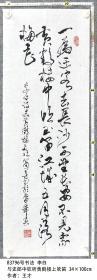 一为迁客去长沙西望长安不见家
黄鹤楼中吹玉笛江城五月落
梅花
83796号书法 李白
与史郎中钦听黄鹤楼上吹笛 34×100cm
作者：王才